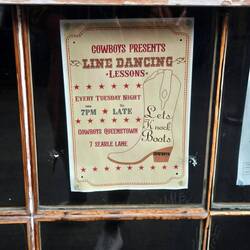 COWBOYS PRESENTS
LINE DANCING
LESSONS
EVERY TUESDAY NIGHT
7PM TO LATE
Lets
Knock
Boots
COWBOYS QUEENSTOWN
7 SEARLE LANE